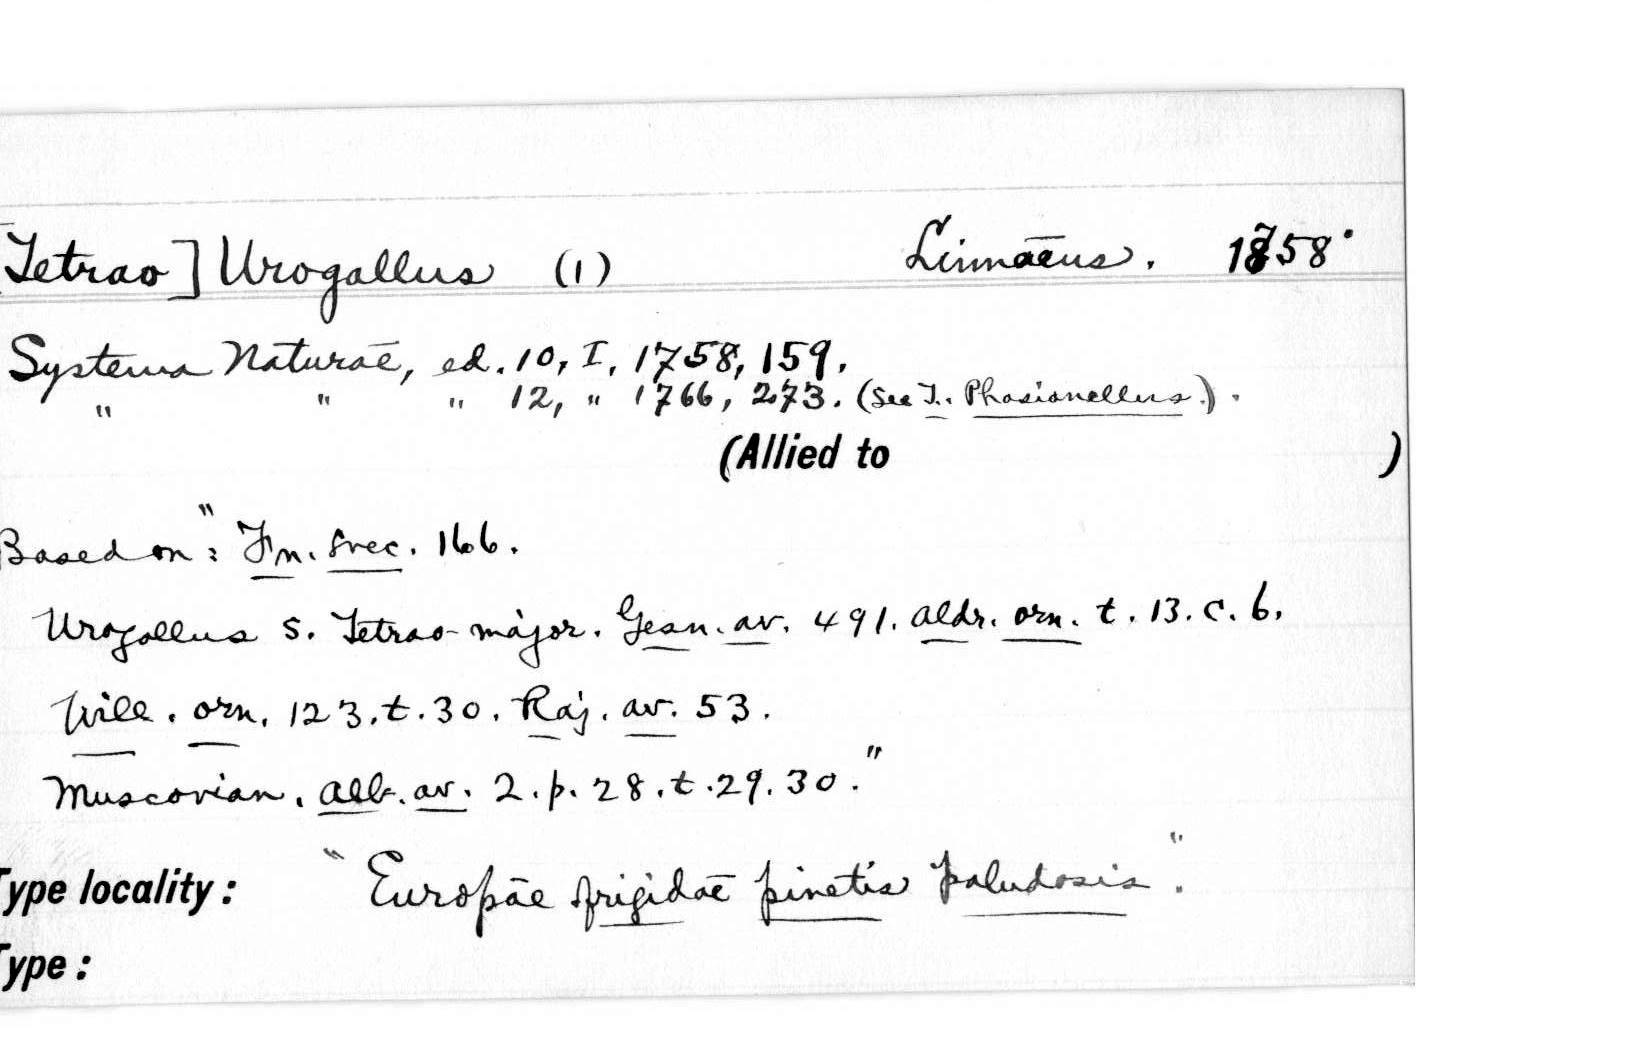 [Tetrao] Urogallus (1) Linnaeus. 1758.
Systema Naturae, ed. 10, I, 1758, 159.
" " " 12, " 1766, 273. (See T. Phasianellus.).
(Allied to )
Based on: "Fn. svec. 166.
Urogallus s. Tetrao major. Gesn. av. 491. Aldr. orn. t. 13. c. 6.
Will. orn. 123. t. 30. Raj. av. 53.
Muscovian. Alb. av. 2. p. 28. t. 29. 30."
Type locality: "Europae frigidae pinetis paludosis".
Type: